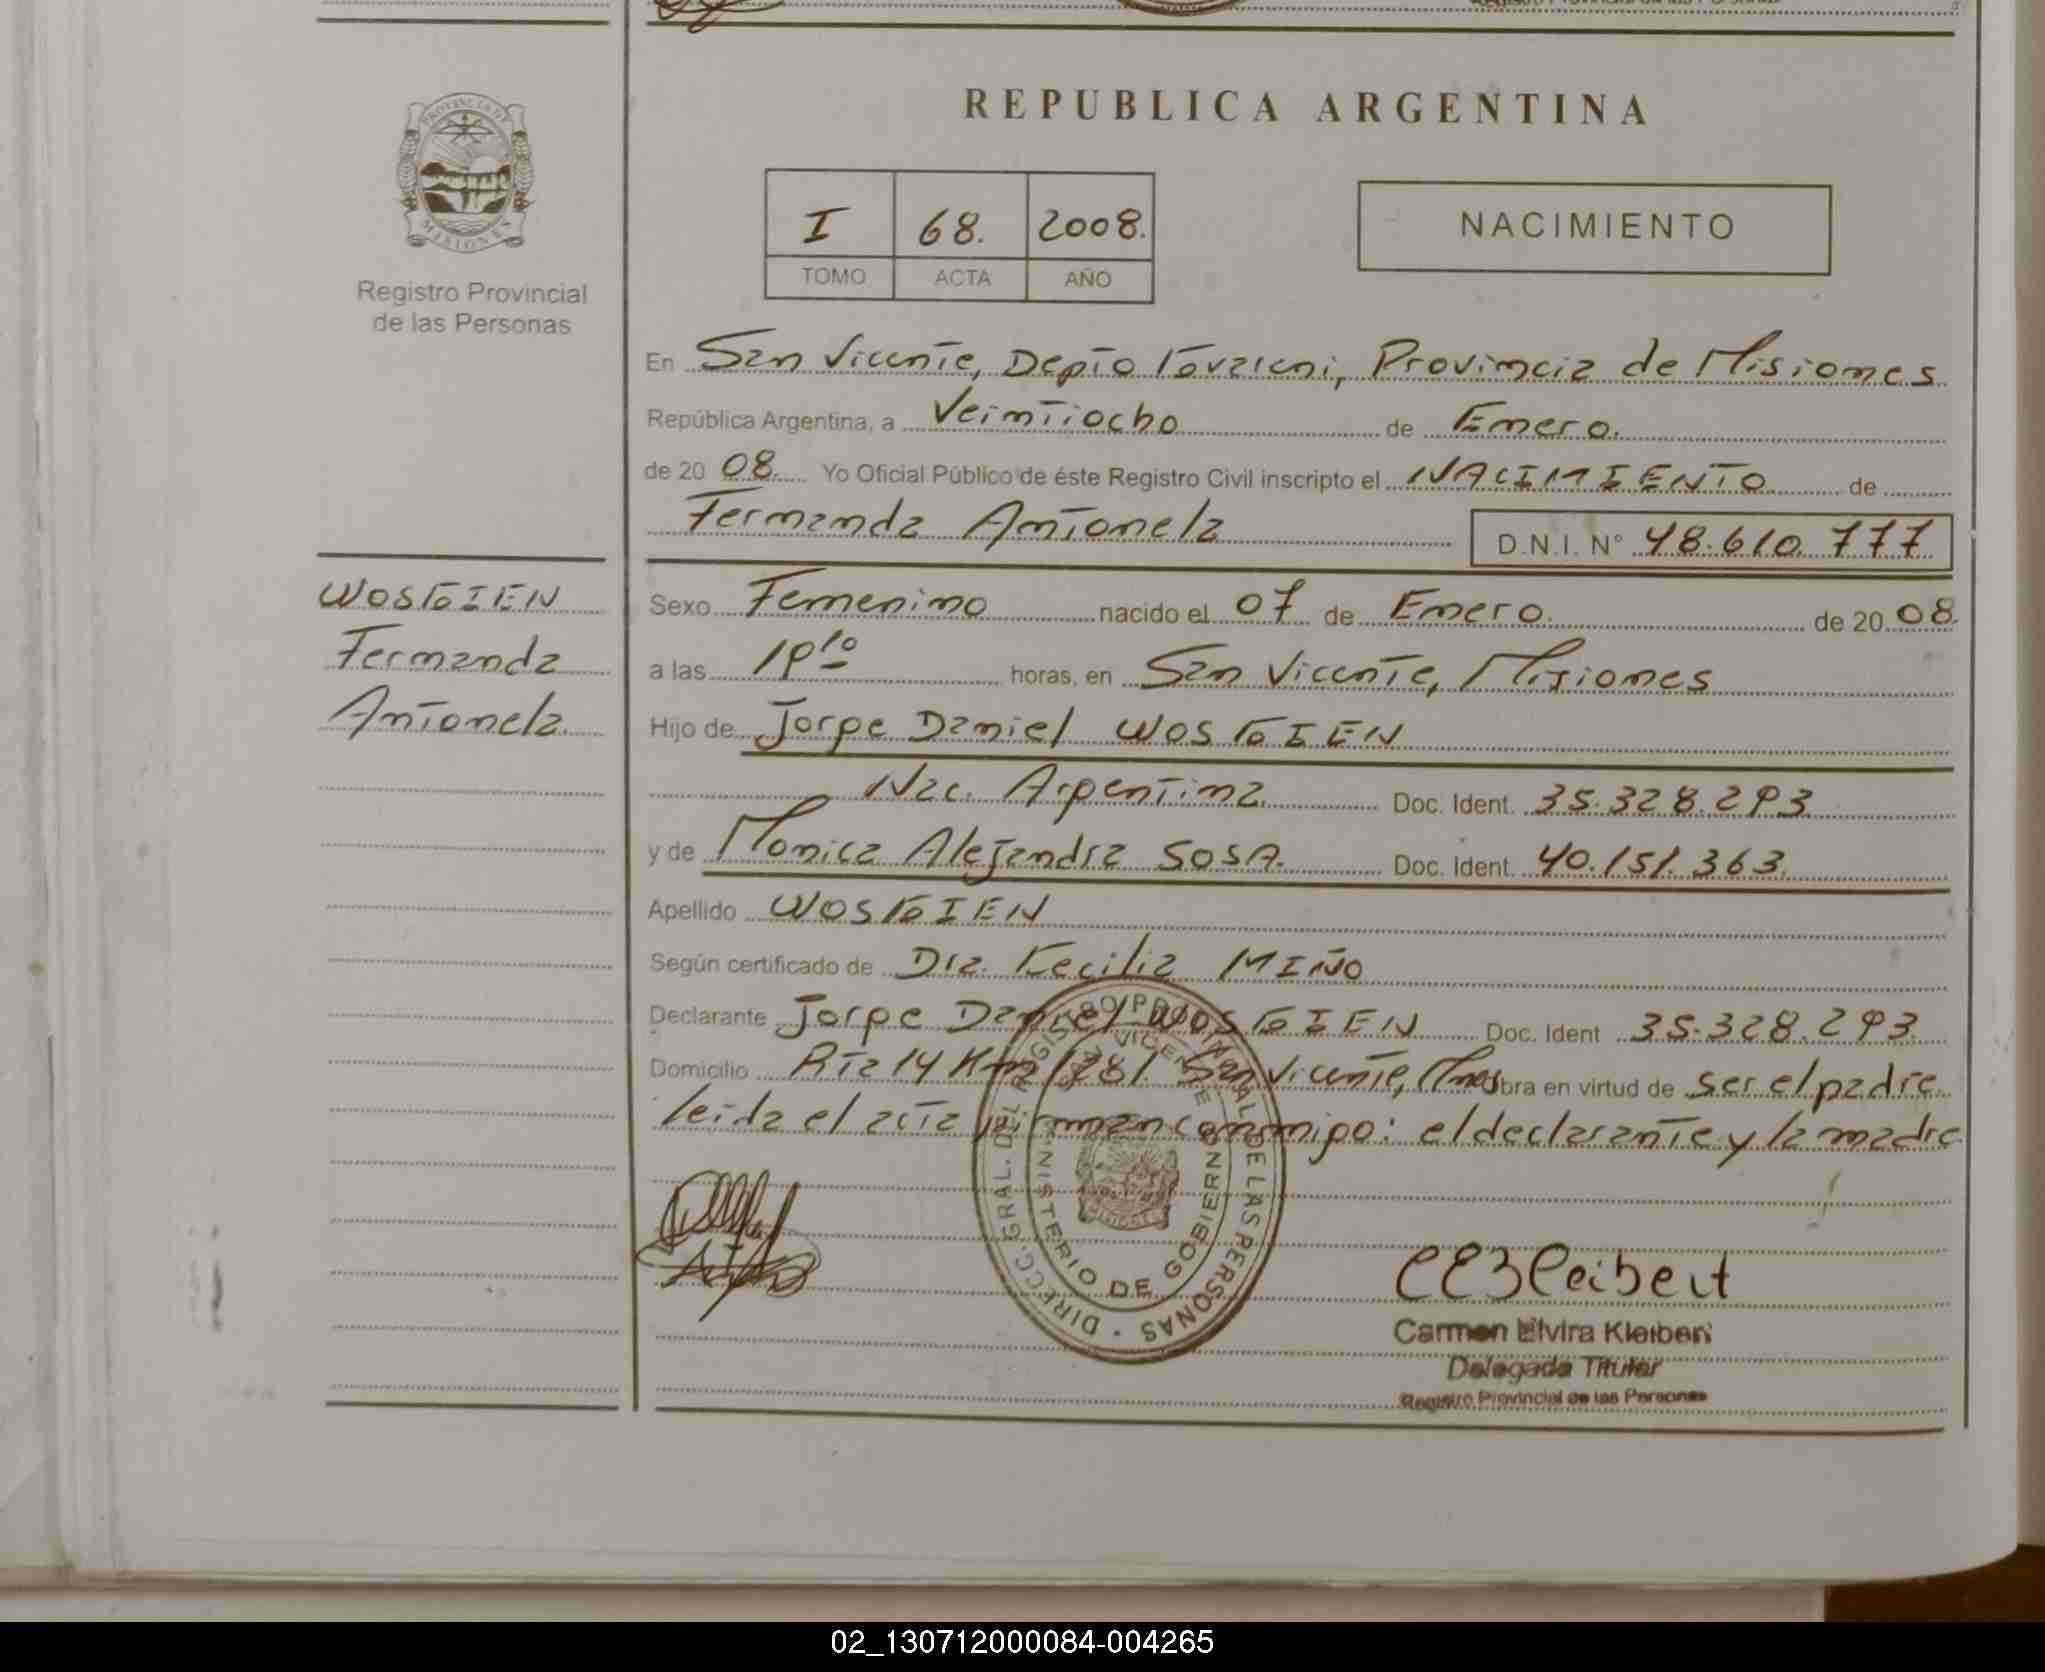 REPUBLICA ARGENTINA
PROVINCIA DE
MISIONES
Registro Provincial
de las Personas
I 68. 2008.
TOMO ACTA AÑO
NACIMIENTO
En San Vicente, Depto Guaraní, Provincia de Misiones
República Argentina, a Veintiocho de Enero.
de 2008. Yo Oficial Público de éste Registro Civil inscripto el NACIMIENTO de
Fernanda Antonela D.N.I. N° 48.610.777
WOSGIEN
Fernanda
Antonela.
Sexo Femenino nacido el 07 de Enero. de 2008.
a las horas, en San Vicente, Misiones
Hijo de Jorge Daniel WOSGIEN
Nac. Argentina. Doc. Ident. 35.328.293
y de Monica Alejandra SOSA. Doc. Ident. 40.151.363.
Apellido WOSGIEN
Según certificado de Dra. Cecilia MIÑO
Declarante Jorge Daniel WOSGIEN Doc. Ident 35.328.293.
Domicilio Rta 14 Km 1281 San Vicente, Mnes Obra en virtud de ser el padre
leida el acta firman conmigo: el declarante y la madre
DIRECC. GRAL. DEL REGISTRO PROVINCIAL DE LAS PERSONAS
SAN VICENTE
MINISTERIO DE GOBIERNO
MISIONES
CEKleibert
Carmen Elvira Kleibert
Delegada Titular
Registro Provincial de las Personas
02_130712000084-004265